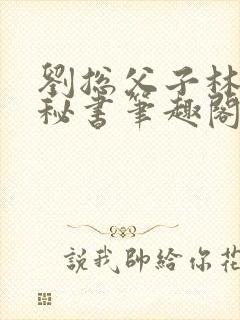 劉总父子林
秘書筆趣閣
說我帥給你花